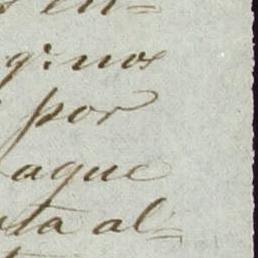 en=
q.e nos
por
aque
ta al=